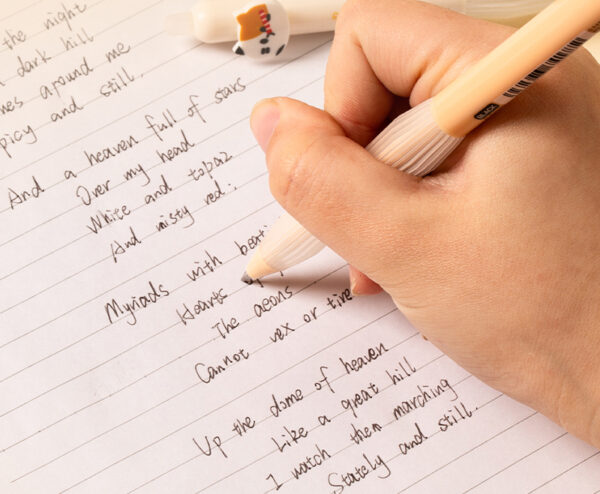 the night
dark hill
around me
and still.
And a heaven full of stars
Over my head
White and topaz
And misty red..
Myriads with
Hearts
The aeons
Cannot vex or tire
Up the dome of heaven
Like a great hill
I watch them marching
Stately and still.
BLACK